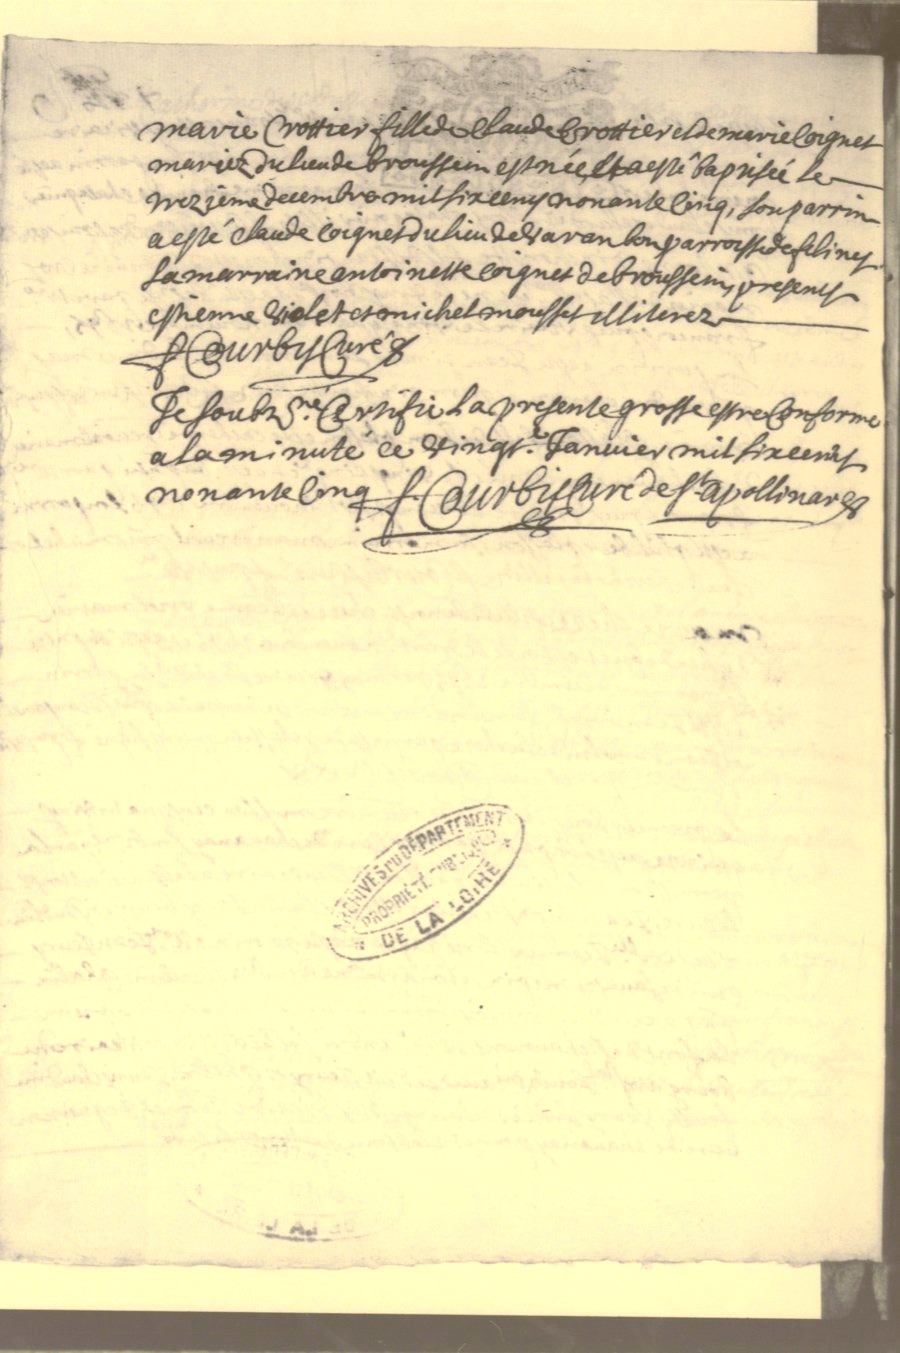 marie Crottier fille de Claude Crottier et de marie Coignet
mariez du lieu de broussein est née, et a esté baptisée le
trezième decembre mil six cens nonante Cinq, son parrin
a esté Claude Coignet du lieu de Varanbon parroisse de felines
la marraine antoinette Coignet de broussein, presens
estienne Violet et michel mousset illiterez
f Courbis Curé
Je soubz sné. Certifie la presente grosse estre Conforme
a la minute ce Vingt.e Janvier mil six cens
nonante Cinq f. Courbis Curé de St apollinard
ARCHIVES DU DÉPARTEMENT
PROPRIÉTÉ PUBLIQUE
DE LA LOIRE